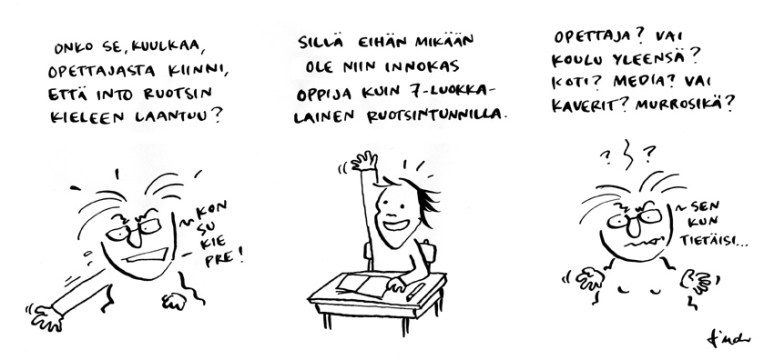 ONKO SE, KUULKAA,
OPETTAJASTA KIINNI,
ETTÄ INTO RUOTSIN
KIELEEN LAANTUU?
KON
SU
KIE
PRE!
SILLÄ EIHÄN MIKÄÄN
OLE NIIN INNOKAS
OPPIJA KUIN 7-LUOKKA-
LAINEN RUOTSINTUNNILLA.
OPETTAJA? VAI
KOULU YLEENSÄ?
KOTI? MEDIA? VAI
KAVERIT? MURROSIKÄ?
? ?
SEN
KUN
TIETÄISI...